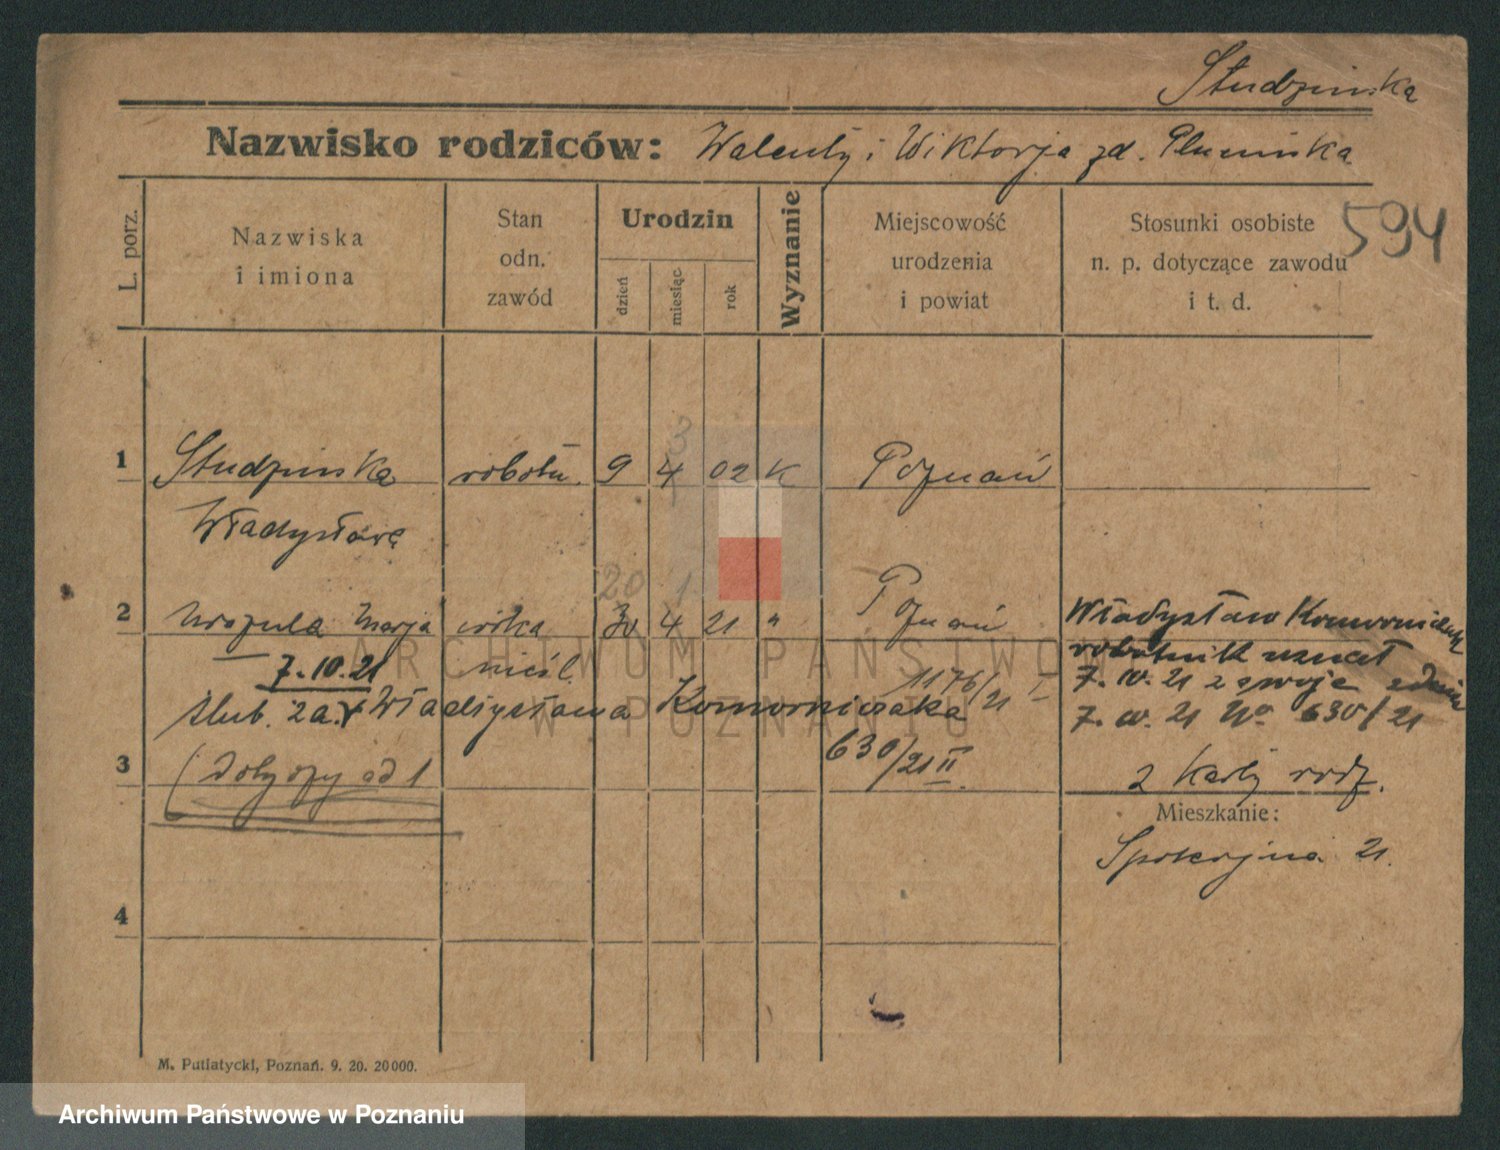 Studzinska
Nazwisko rodziców: Walenty i Wiktorja zd. Plumińska
L. porz.
Nazwiska
i imiona
Stan
odn.
zawód
Urodzin
dzień
miesiąc
rok
Wyznanie
Miejscowość
urodzenia
i powiat
Stosunki osobiste
n. p. dotyczące zawodu
i t. d.
594
3
1 Studzinska robotn. 9 4 02 K Poznań
Władysława
20 1
2 Urszula Marja córka 30 4 21 " Poznań
7.10.21 nieśl. 1176/21 I
ślub. z a. Władysława Komorniczaka
630/21 II
Władysław Komorniczak
robotnik uznał
7.10.21 z swoje
7.10.21 No 630/21
2 Karty rodz.
3 (Dotyczy ad 1
Mieszkanie:
Spokojna 21.
4
M. Putiatycki, Poznań. 9. 20. 20000.
ARCHIWUM PAŃSTWOWE
W POZNANIU
Archiwum Państwowe w Poznaniu